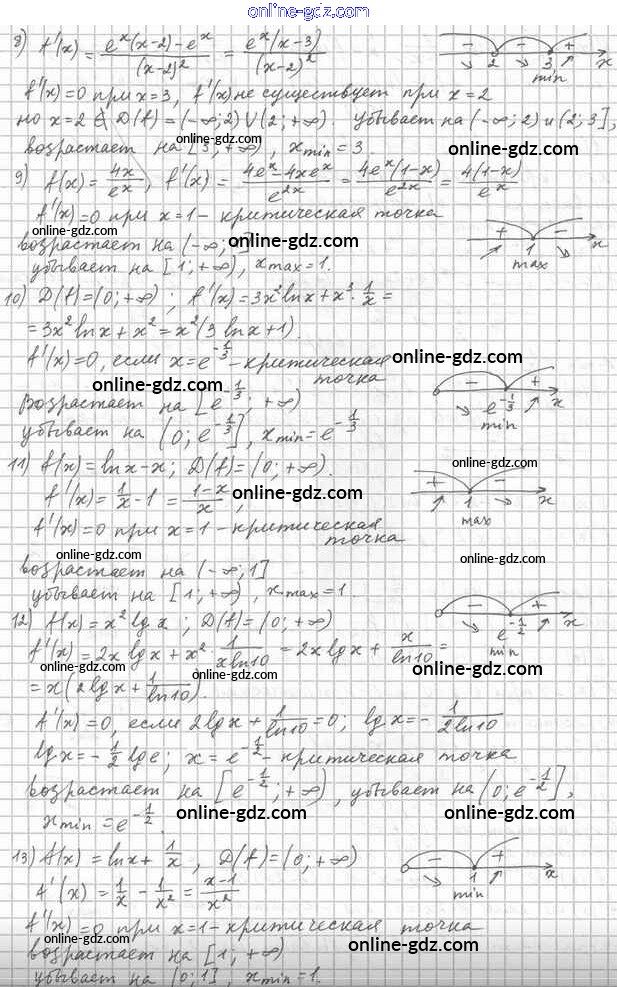 online-gdz.com
8) f'(x) = (e^x(x-2) - e^x)/(x-2)^2 = e^x(x-3)/(x-2)^2
- - + 2 3 min x
f'(x)=0 при x=3, f'(x) не существует при x=2
но x=2 ∉ D(f)=(-∞;2)∪(2;+∞). убывает на (-∞;2) и (2;3],
возрастает на [3;+∞), x min=3. online-gdz.com
9) f(x)=4x/e^x, f'(x)=(4e^x-4xe^x)/e^2x=4e^x(1-x)/e^2x=4(1-x)/e^x
online-gdz.com online-gdz.com
f'(x)=0 при x=1- критическая точка
возрастает на (-∞;1] online-gdz.com
+ - 1 max x online-gdz.com
убывает на [1;+∞), x max=1.
10) D(f)=(0;+∞); f'(x)=3x² ln x+x³·1/x=
=3x² ln x+x²=x²(3 ln x+1).
f'(x)=0, если x=e^-1/3 - критическая точка online-gdz.com
online-gdz.com
- + e^-1/3 min x
возрастает на [e^-1/3;+∞)
убывает на (0;e^-1/3], x min=e^-1/3
11) f(x)=ln x-x; D(f)=(0;+∞). online-gdz.com
f'(x)=1/x-1=(1-x)/x, online-gdz.com
+ - 1 max x
f'(x)=0 при x=1- критическая точка
online-gdz.com online-gdz.com
возрастает на (-∞;1]
убывает на [1;+∞), x max=1.
12) f(x)=x² lg x; D(f)=(0;+∞)
- + e^-1/2 min x
f'(x)=2x lg x+x²·1/(x ln10)=2x lg x+x/ln10=
online-gdz.com online-gdz.com online-gdz.com
=x(2 lg x+1/ln10).
f'(x)=0, если 2 lg x+1/ln10=0; lg x=-1/(2 ln10)
lg x=-1/2 lg e; x=e^-1/2 - критическая точка
возрастает на [e^-1/2;+∞), убывает на (0;e^-1/2],
x min=e^-1/2. online-gdz.com online-gdz.com
13) f(x)=ln x+1/x, D(f)=(0;+∞) online-gdz.com
- + 1 min x
f'(x)=1/x-1/x²=(x-1)/x²
f'(x)=0 при x=1- критическая точка
online-gdz.com online-gdz.com
возрастает на [1;+∞)
убывает на (0;1], x min=1.
online-gdz.com